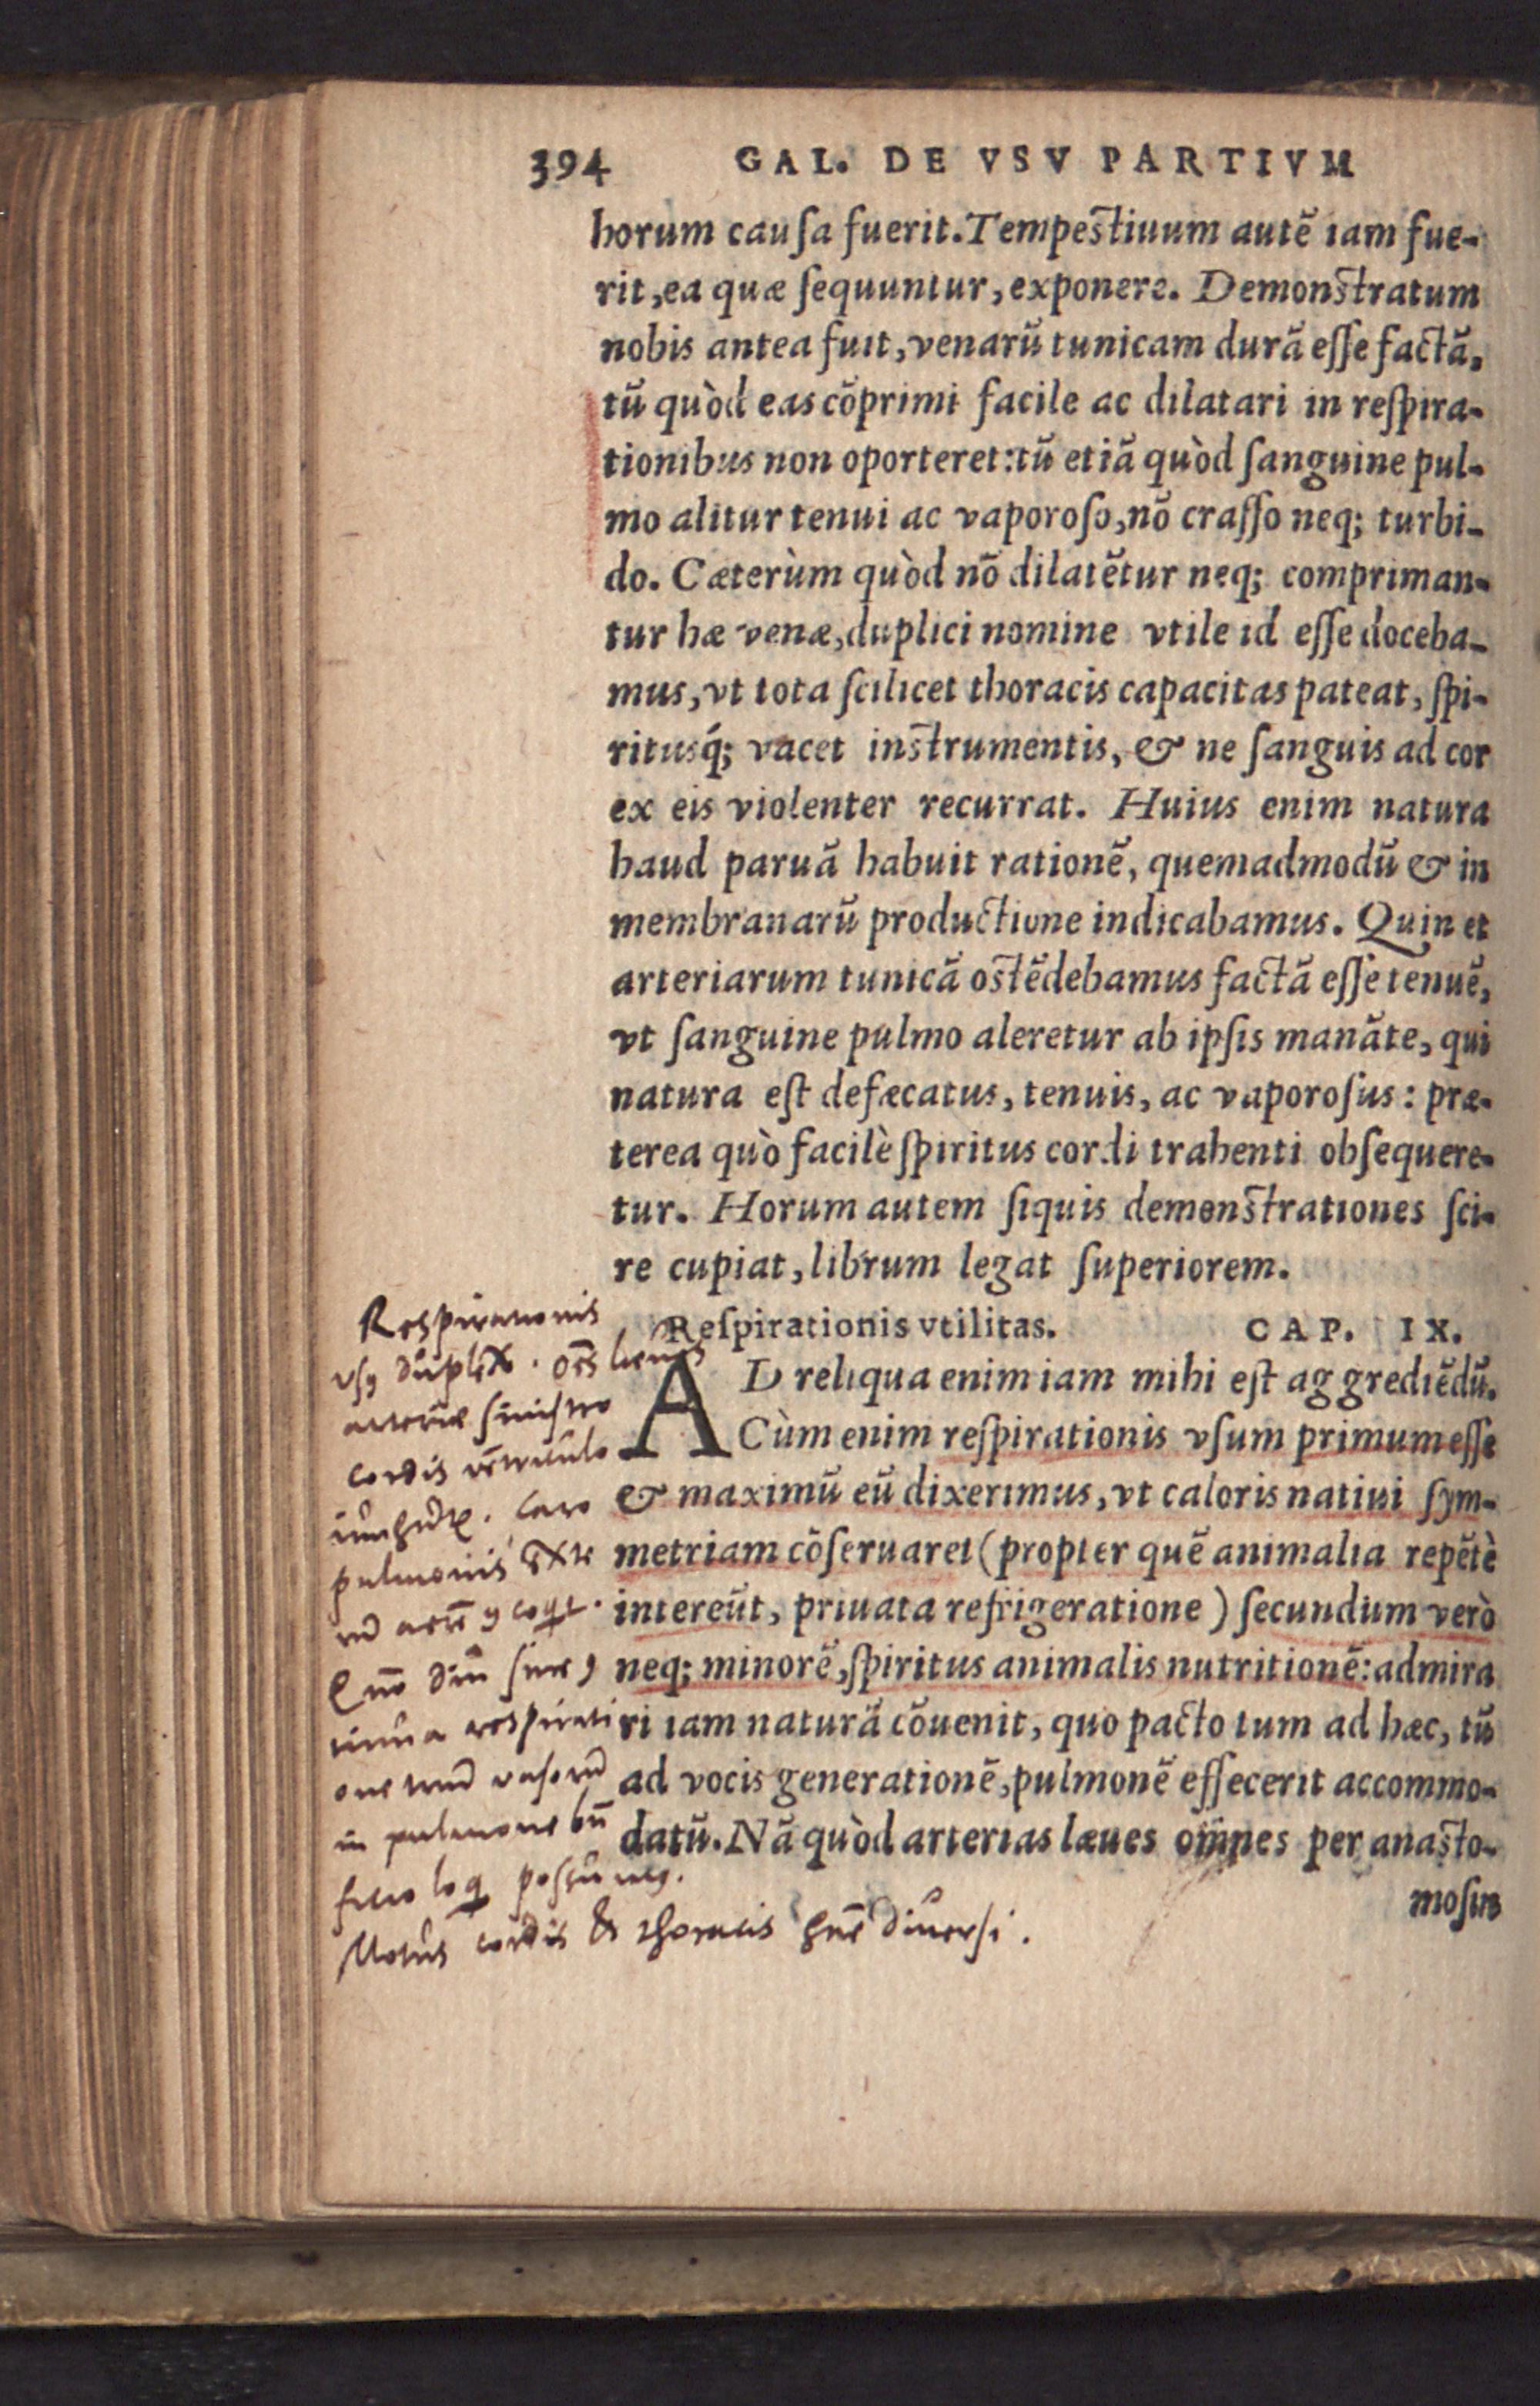 394 GAL. DE VSV PARTIVM
horum cauſa fuerit. Tempeſtiuum autẽ iam fue-
rit, ea quæ ſequuntur, exponere. Demonſtratum
nobis antea fuit, venarũ tunicam durã eſſe factã,
tũ quòd eas cõprimi facile ac dilatari in reſpira-
tionibus non oporteret: tũ etiã quòd ſanguine pul-
mo alitur tenui ac vaporoſo, nõ craſſo neq; turbi-
do. Cæterùm quòd nõ dilatẽtur neq; compriman-
tur hæ venæ, duplici nomine vtile id eſſe doceba-
mus, vt tota ſcilicet thoracis capacitas pateat, ſpi-
rituſq́; vacet inſtrumentis, & ne ſanguis ad cor
ex eis violenter recurrat. Huius enim natura
haud paruã habuit rationẽ, quemadmodũ & in
membranarũ productione indicabamus. Quin et
arteriarum tunicã oſtẽdebamus factã eſſe tenuẽ,
vt ſanguine pulmo aleretur ab ipſis manãte, qui
natura eſt defæcatus, tenuis, ac vaporoſus: præ-
terea quò facilè ſpiritus cordi trahenti obſequere-
tur. Horum autem ſiquis demonſtrationes ſci-
re cupiat, librum legat ſuperiorem.
Reſpirationis vtilitas. CAP. IX.
AD reliqua enim iam mihi eſt aggrediẽdũ.
Cùm enim reſpirationis vſum primum eſſe
& maximũ eũ dixerimus, vt caloris natiui ſym-
metriam cõſeruaret (propter quẽ animalia repẽtè
intereũt, priuata refrigeratione) ſecundum verò
neq; minorẽ, ſpiritus animalis nutritionẽ: admira
ri iam naturã cõuenit, quo pacto tum ad hæc, tũ
ad vocis generationẽ, pulmonẽ effecerit accommo-
datũ. Nã quòd arterias læues omnes per anaſto-
moſin
Respirationis
duplex.
arteriæ sinistro
cordis
caro
pulmonis
respirati
in pulmone
Motus cordis & thoracis diuersi.